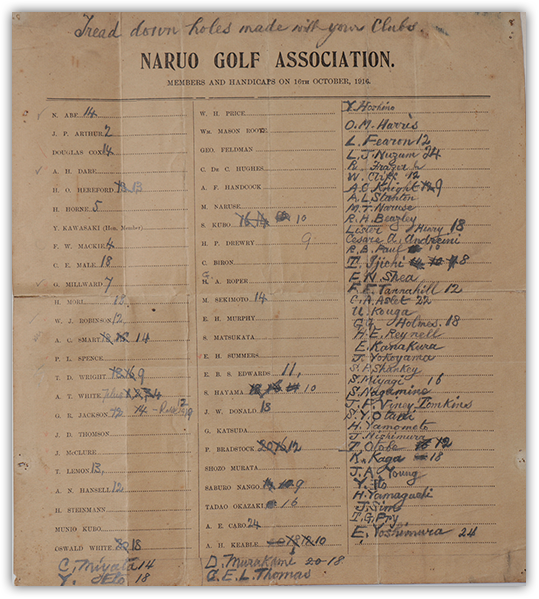 Tread down holes made with your Clubs.
NARUO GOLF ASSOCIATION.
MEMBERS AND HANDICAPS ON 16TH OCTOBER, 1916.
N. ABE 14
J. P. ARTHUR 7
DOUGLAS COX 14
A. H. DARE
H. O. HEREFORD 13
H. HORNE 5
Y. KAWASAKI (Hon. Member)
F. W. MACKIE 4
C. E. MALE 18
G. MILLWARD 7
H. MORI 15
W. J. ROBINSON 12
A. G. SMART 14
P. L. SPENCE
T. D. WRIGHT 9
A. T. WHITE plus 4
G. R. JACKSON 12 14
J. D. THOMSON
J. McCLURE
T. LEMON 13,
A. N. HANSELL 12
H. STEINMANN
MUNIO KUBO
OSWALD WHITE 18
C. Miyata 14
Y. Eto 18
W. H. PRICE
WM. MASON ROOTE
GEO. FELDMAN
C. DU C. HUGHES
A. F. HANDCOCK
M. NARUSE
S. KUBO 10
H. P. DREWRY 9
C. BIRON
M. A. ROPER
M. SEKIMOTO 14
E. H. MURPHY
S. MATSUKATA
E. H. SUMMERS
E. B. S. EDWARDS 11,
S. HAYAMA 10
J. W. DONALD 13
G. KATSUDA
P. BRADSTOCK 12
SHOZO MURATA
SABURO NANGO 9
TADAO OKAZAKI 16
A. E. CARO 24
A. H. KEABLE 10
D. Murakami 20-18
C. E. L. Thomas
Y. Hoshino
O. M. Harris
L. Fearon 12
L. J. Nuzum 24
R. Frazar
W. Cliff 12
A. O. Knight 9
A. L. Stanton
M. T. Naruse
R. H. Beazley
Lester Henry 18
Cesare A. Andreini
R. B. Paul 10
T. Ijichi 8
E. N. Shea
F. E. Tannahill 12
C. A. Aslet 22
U. Kouga
G. G. Holmes. 18
H. E. Reynell
E. Kanakura
J. Yokoyama
S. P. Sharkey
S. Miyagi 16
S. Sugimine
J. F. Viney Tomkins
S. Y. Otani
H. Yamomoto
J. Nishimura
T. Otobe 12
K. Kaga 18
J. A. Young
Y. Ito
H. Yamaguchi
J. Sim
T. G. Fry
E. Yoshimura 24